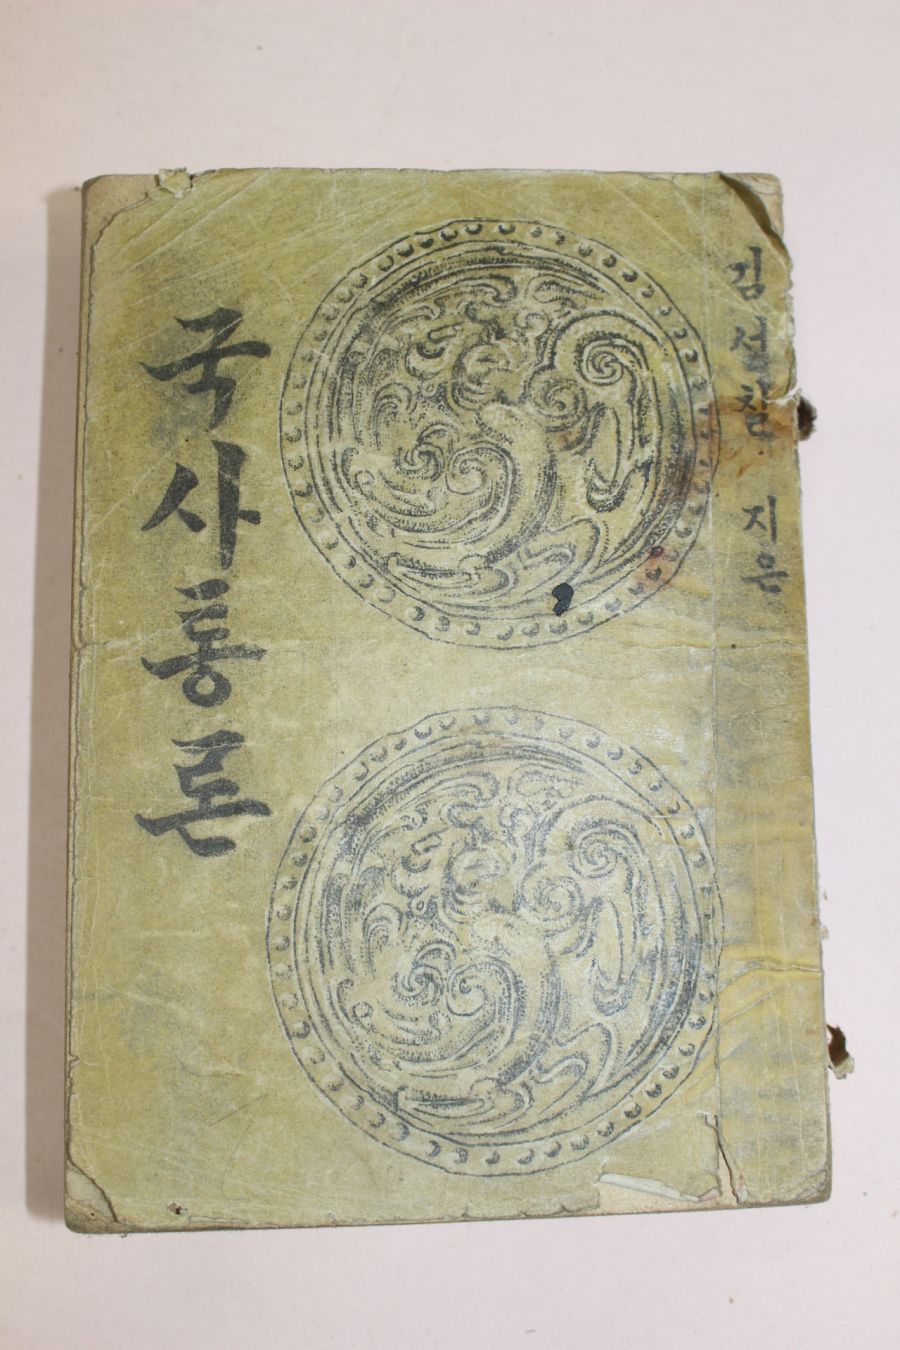 김성칠 지은
국사통론